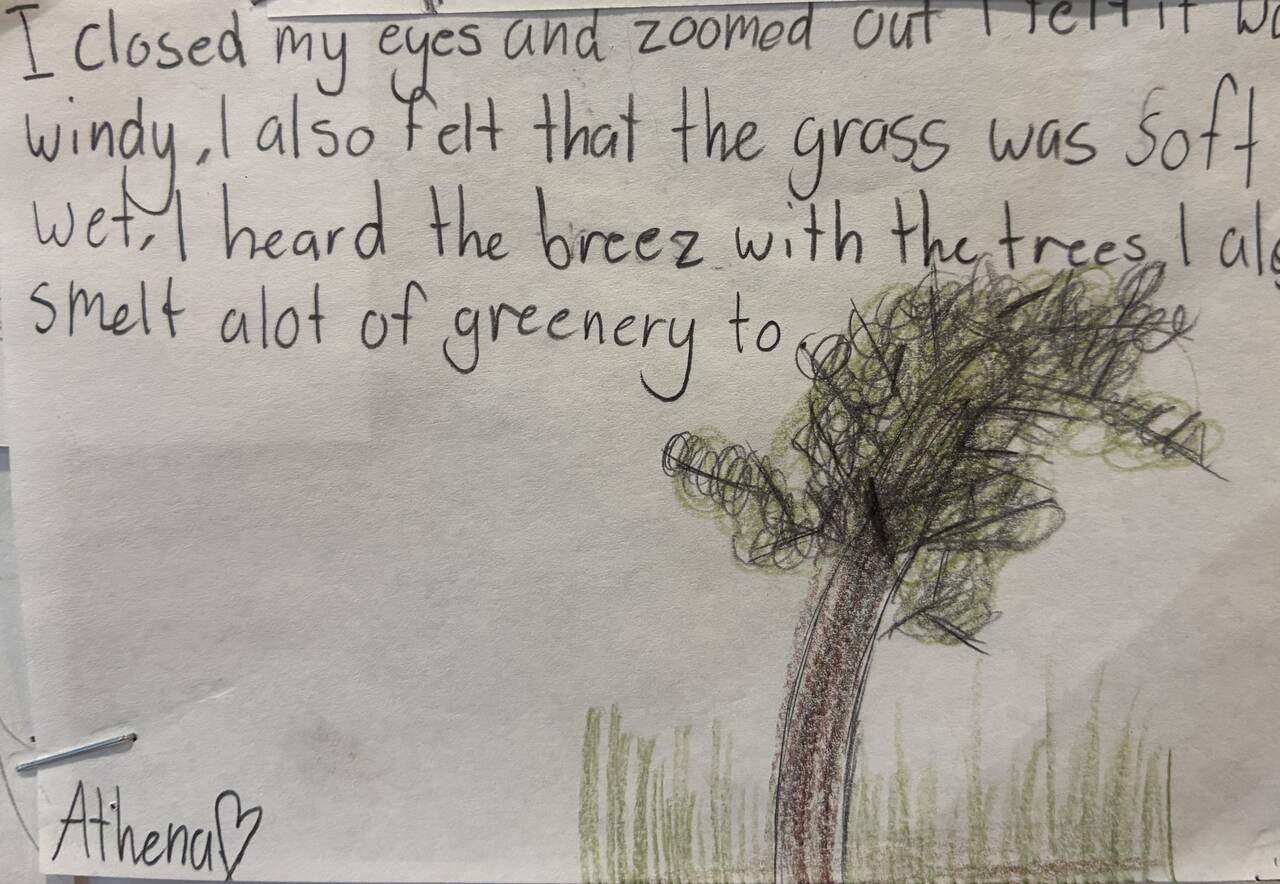 I closed my eyes and zoomed out I felt it
windy, I also felt that the grass was soft
wet, I heard the breez with the trees, I
smelt alot of greenery to.
Athena♡